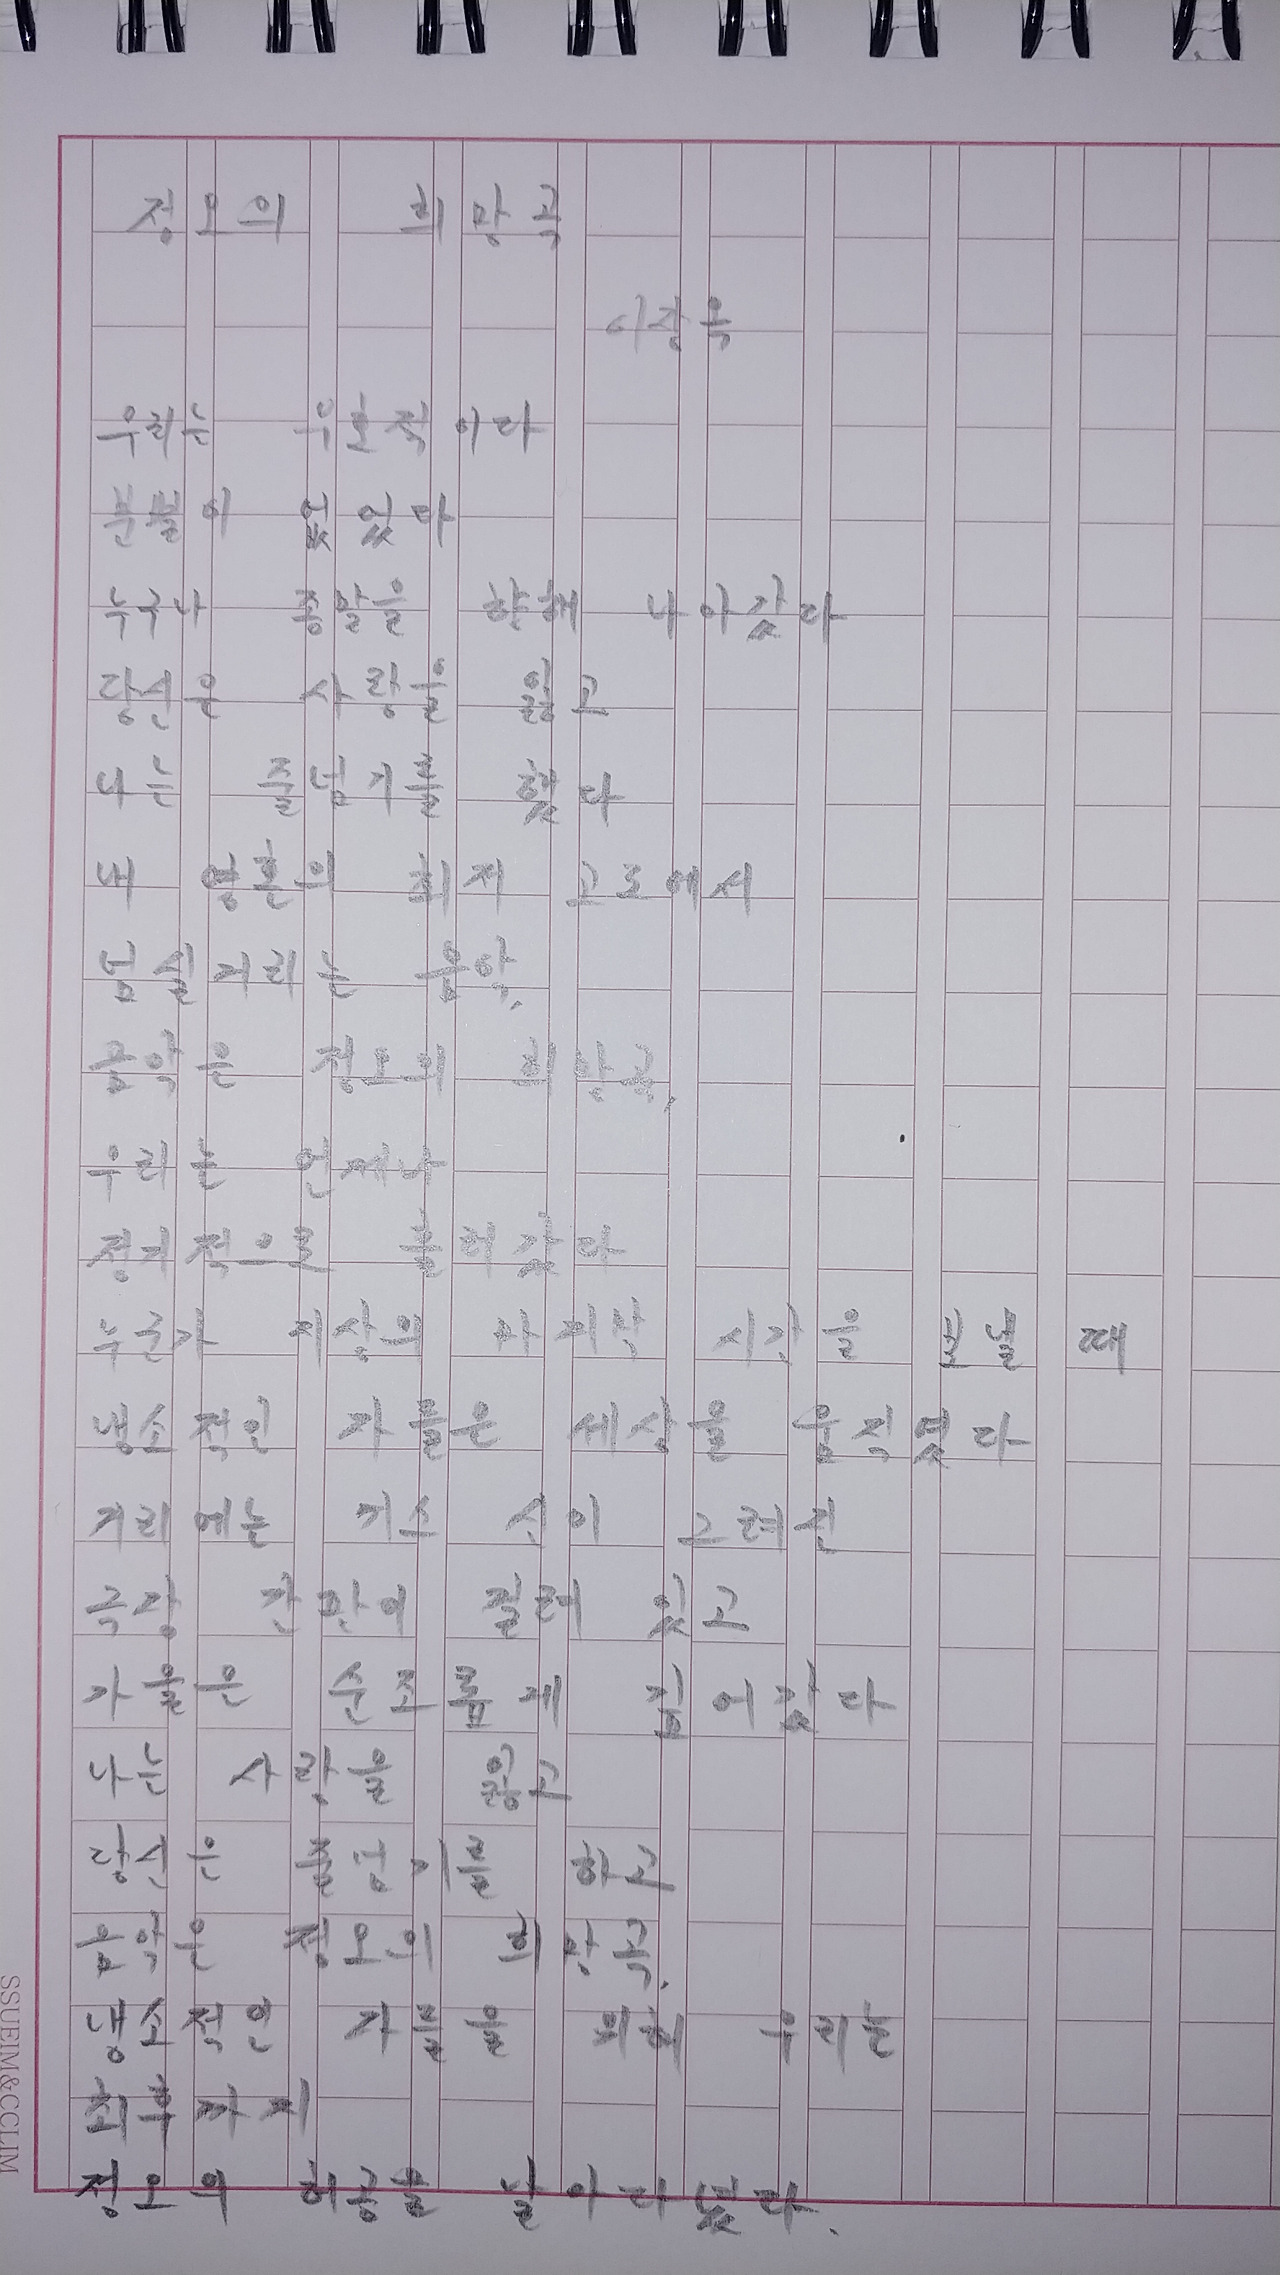 정오의 희망곡
이장욱
우리는 우호적이다
분별이 없었다
누구나 종말을 향해 나아갔다
당신은 사랑을 잃고
나는 줄넘기를 했다
내 영혼의 최저 고도에서
넘실거리는 음악,
음악은 정오의 희망곡,
우리는 언제나
정기적으로 흘러갔다
누군가 지상의 마지막 시간을 보낼 때
냉소적인 자들은 세상을 움직였다
거리에는 키스 신이 그려진
극장 간판이 걸려 있고
가을은 순조롭게 깊어갔다
나는 사랑을 잃고
당신은 줄넘기를 하고
음악은 정오의 희망곡,
냉소적인 자들을 위해 우리는
최후까지
정오의 허공을 날아다녔다.
SSUEIM&CCLIM